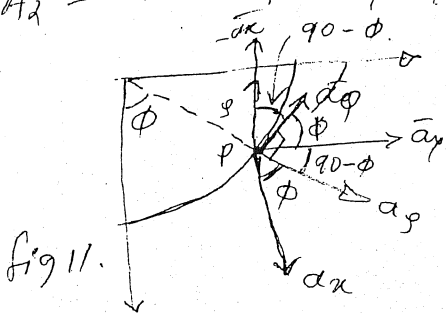 A2 -
-āx 90-Φ.
Φ ρ āφ
ρ Φ āy
90-Φ
Φ aρ
fig 11.
ax